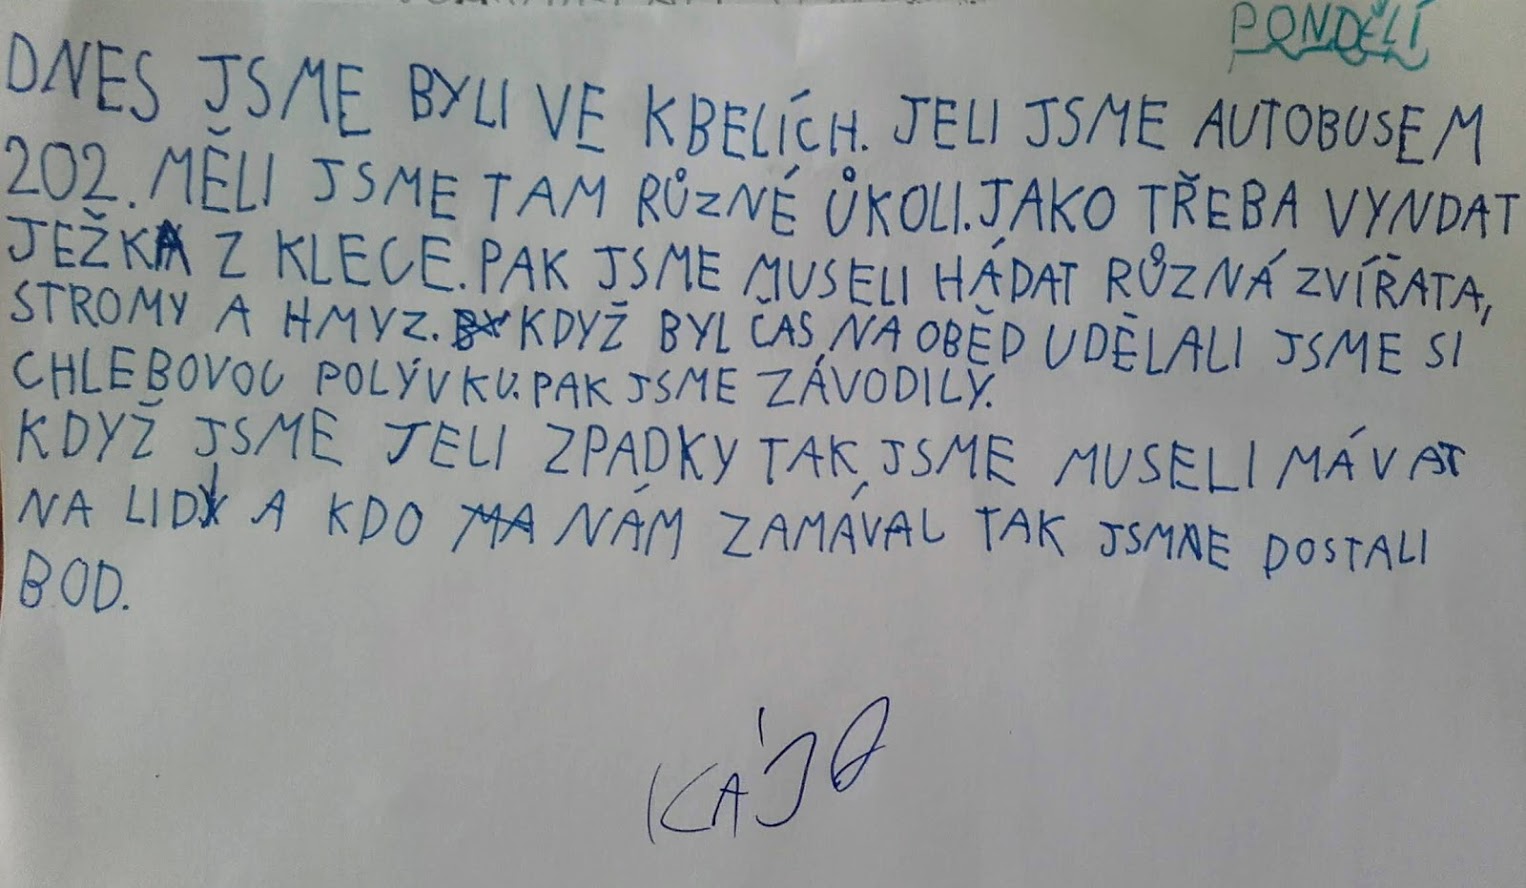 PONDĚLÍ
DNES JSME BYLI VE KBELÍCH. JELI JSME AUTOBUSEM
202. MĚLI JSME TAM RŮZNÉ ŮKOLI. JAKO TŘEBA VYNDAT
JEŽKA Z KLECE. PAK JSME MUSELI HÁDAT RŮZNÁ ZVÍŘATA,
STROMY A HMYZ. KDYŽ BYL ČAS NA OBĚD UDĚLALI JSME SI
CHLEBOVOU POLÝVKU. PAK JSME ZÁVODILY.
KDYŽ JSME JELI ZPADKY TAK JSME MUSELI MÁVAT
NA LIDI A KDO MA NÁM ZAMÁVAL TAK JSME DOSTALI
BOD.
KÁJA